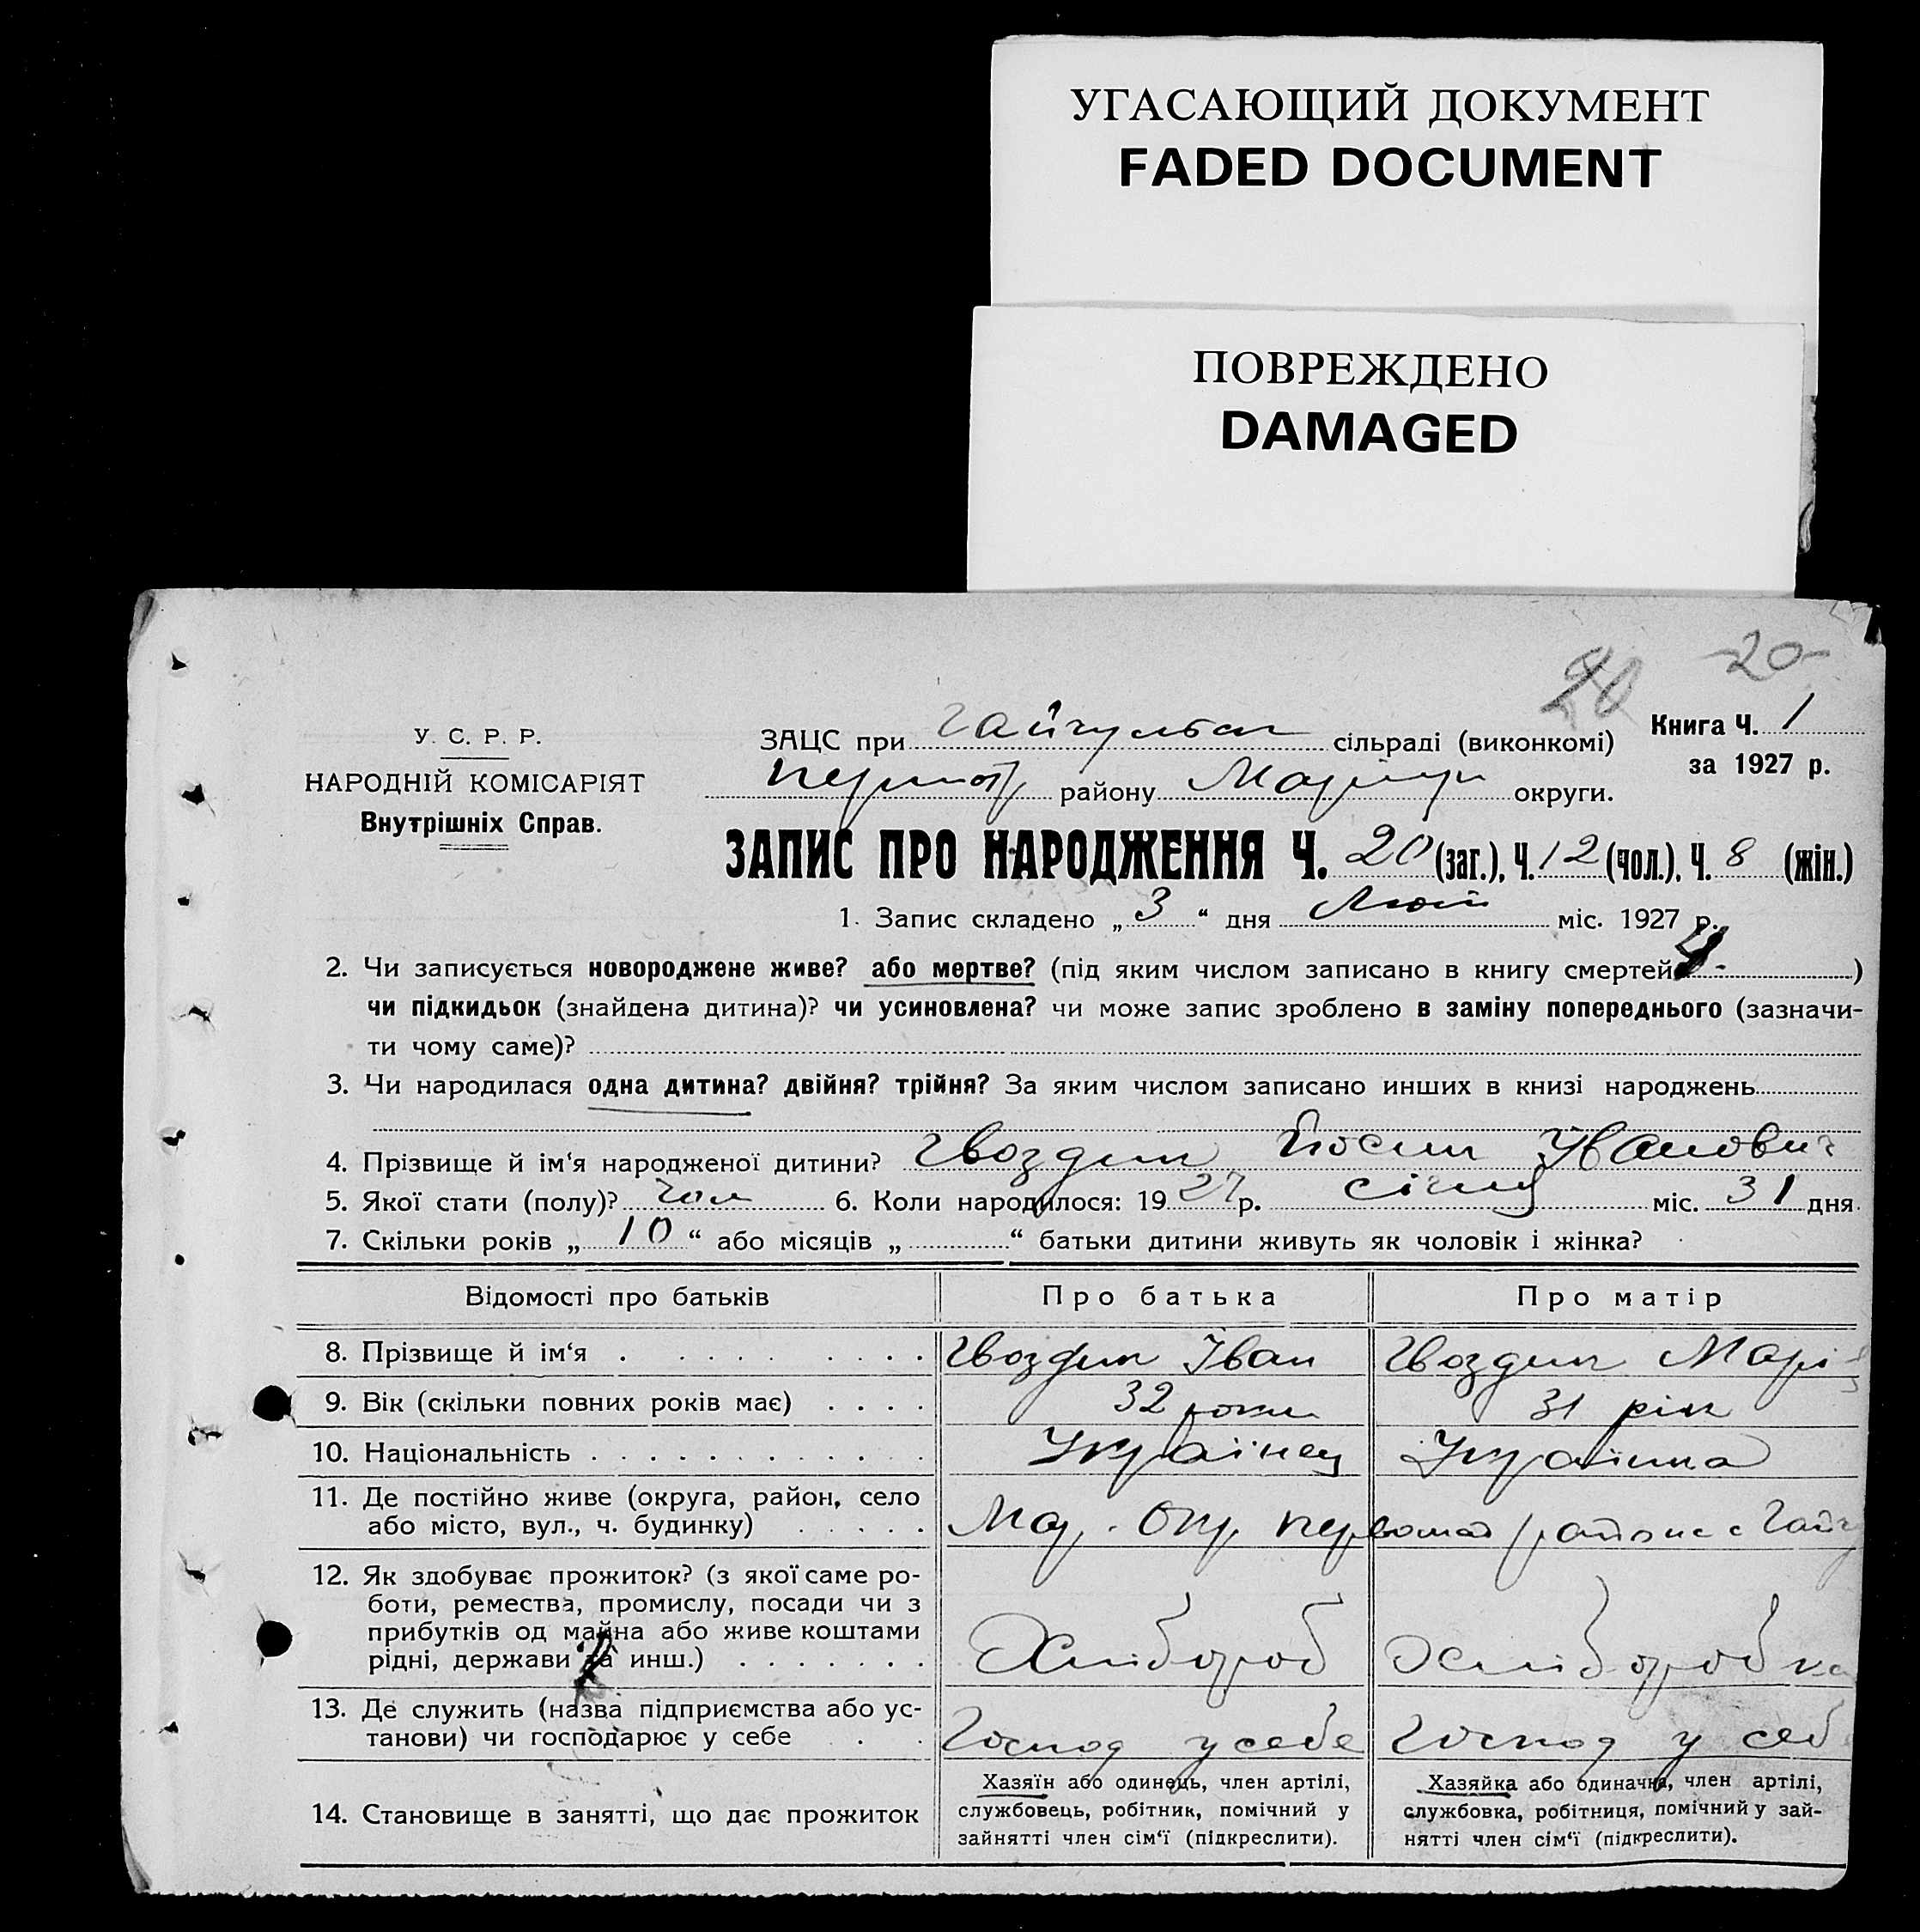 УГАСАЮЩИЙ ДОКУМЕНТ
FADED DOCUMENT
ПОВРЕЖДЕНО
DAMAGED
20 -20-
У. С. Р. Р.
НАРОДНІЙ КОМІСАРІЯТ
Внутрішніх Справ.
Книга Ч. 1
за 1927 р.
ЗАЦС при сільраді (виконкомі)
району округи.
ЗАПИС ПРО НАРОДЖЕННЯ Ч. 20 (заг.), Ч. 12 (чол.), Ч. 8 (жін.)
1. Запис складено „ 3 “ дня міс. 1927 р.
2. Чи записується новороджене живе? або мертве? (під яким числом записано в книгу смертей )
чи підкидьок (знайдена дитина)? чи усиновлена? чи може запис зроблено в заміну попереднього (зазначи-
ти чому саме)?
3. Чи народилася одна дитина? двійня? трійня? За яким числом записано инших в книзі народжень
4. Прізвище й ім‘я народженої дитини? Гвоздик Йосип Іванович
5. Якої стати (полу)? чол 6. Коли народилося: 19 27 р. січня міс. 31 дня
7. Скільки років „ 10 “ або місяців „ “ батьки дитини живуть як чоловік і жінка?
Відомості про батьків Про батька Про матір
8. Прізвище й ім‘я Гвоздик Іван Гвоздик Марія
9. Вік (скільки повних років має) 32 роки 31 рік
10. Національність Українец Українка
11. Де постійно живе (округа, район, село
або місто, вул., ч. будинку) Мар. Окр.
12. Як здобуває прожиток? (з якої саме ро-
боти, ремества, промислу, посади чи з
прибутків од майна або живе коштами
рідні, держави та инш.) Хлібороб Хліборобка
13. Де служить (назва підприємства або ус-
танови) чи господарює у себе Господ у себе Господ у себ
14. Становище в занятті, що дає прожиток
Хазяїн або одинець, член артілі,
службовець, робітник, помічний у
зайнятті член сім‘ї (підкреслити).
Хазяйка або одиначка, член артілі,
службовка, робітниця, помічний у зай-
нятті член сім‘ї (підкреслити).